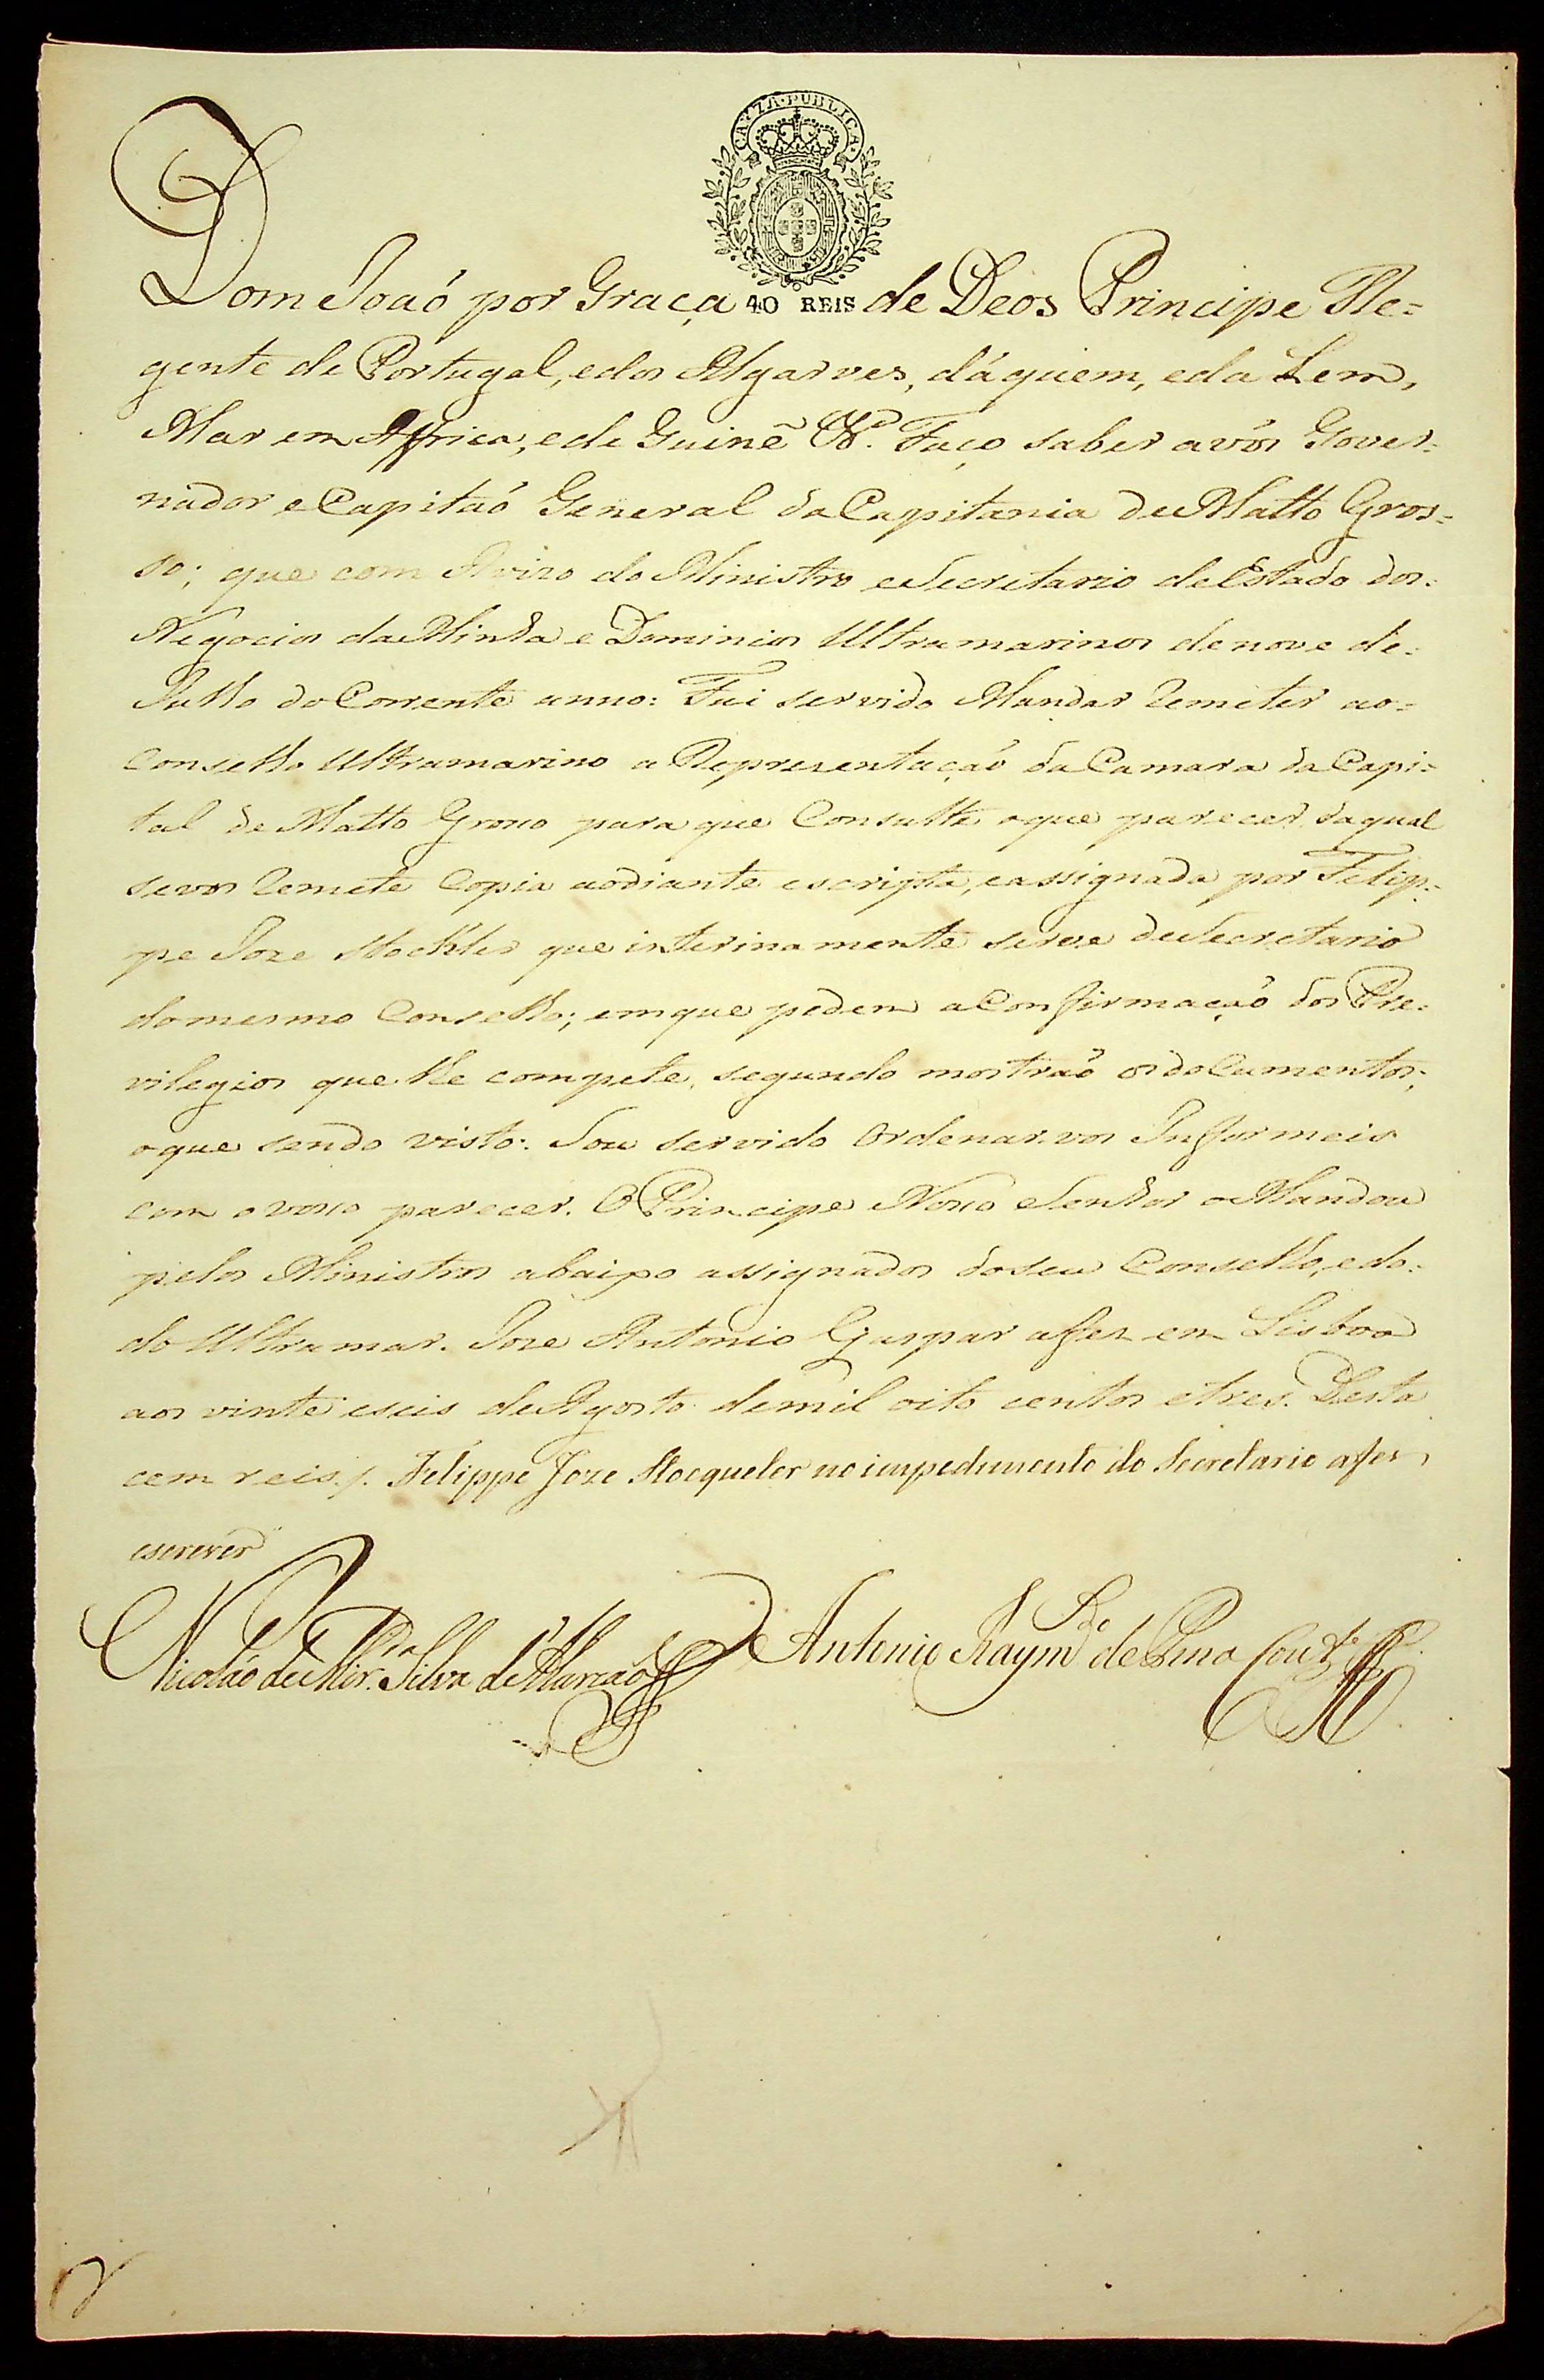 CAYZA PUBLICA
Dom Joaõ por Graça 40 REIS de Deos Principe Re=
gente de Portugal, e dos Algarves, dáquem, e da Lem,
Mar em Affrica, e de Guinê &ª. Faço saber a vós Gover=
nador e Capitaõ General da Capitania de Matto Gros=
so; que com Avizo do Ministro e Secretario de Estado dos=
Negocios da Marinha e Dominios Ultramarinos de nove de=
Julho do Corrente anno: Fui servido Mandar Remeter ao=
Conselho Ultramarino a Representaçaõ da Camara da Capi=
tal de Matto Grosso para que Consulte o que parecer, da qual
se vos Remete Copia ao diante escripta, e assignada por Felip=
pe Joze Stockler que interinamente serve de Secretario
do mesmo Conselho; em que pedem a Confirmaçaõ dos Pre=
vilegios que lhe compete, segundo mostraõ os doCumentos;
o que sendo visto: Sou servido Ordenar vos Informeis
com o vosso parecer. O Principe Nosso Senhor o Mandou
pelos Ministros abaixo assignados do seu Conselho, e do=
do Ultramar. Joze Antonio Gaspar a fez em Lisboa
aos vinte e seis de Agosto de mil oito centos e tres. Desta
cem reis ∫. Felippe Joze Stocqueler no impedimento do Secretario a fes
escrever
Nicoláo de Mir.da Silva d'Alarcaõ
Antonio Raym.do de Pina Cout.º